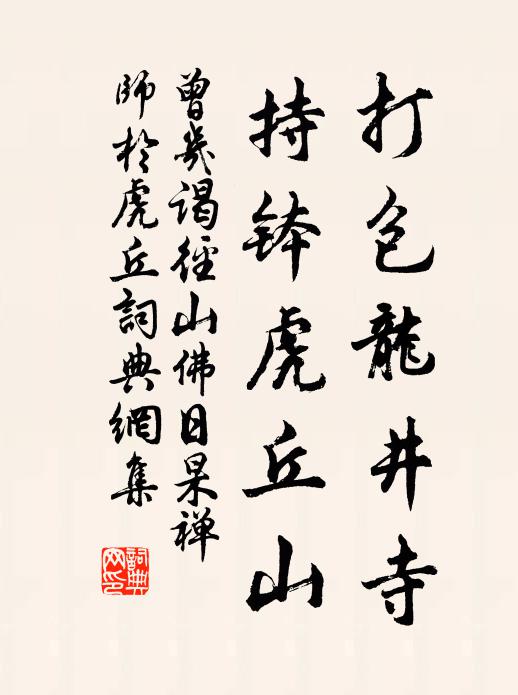 打包龍井寺
持鉢虎丘山
曾幾謁徑山佛日杲禅
師於虎丘詞典網集
詞典
网印